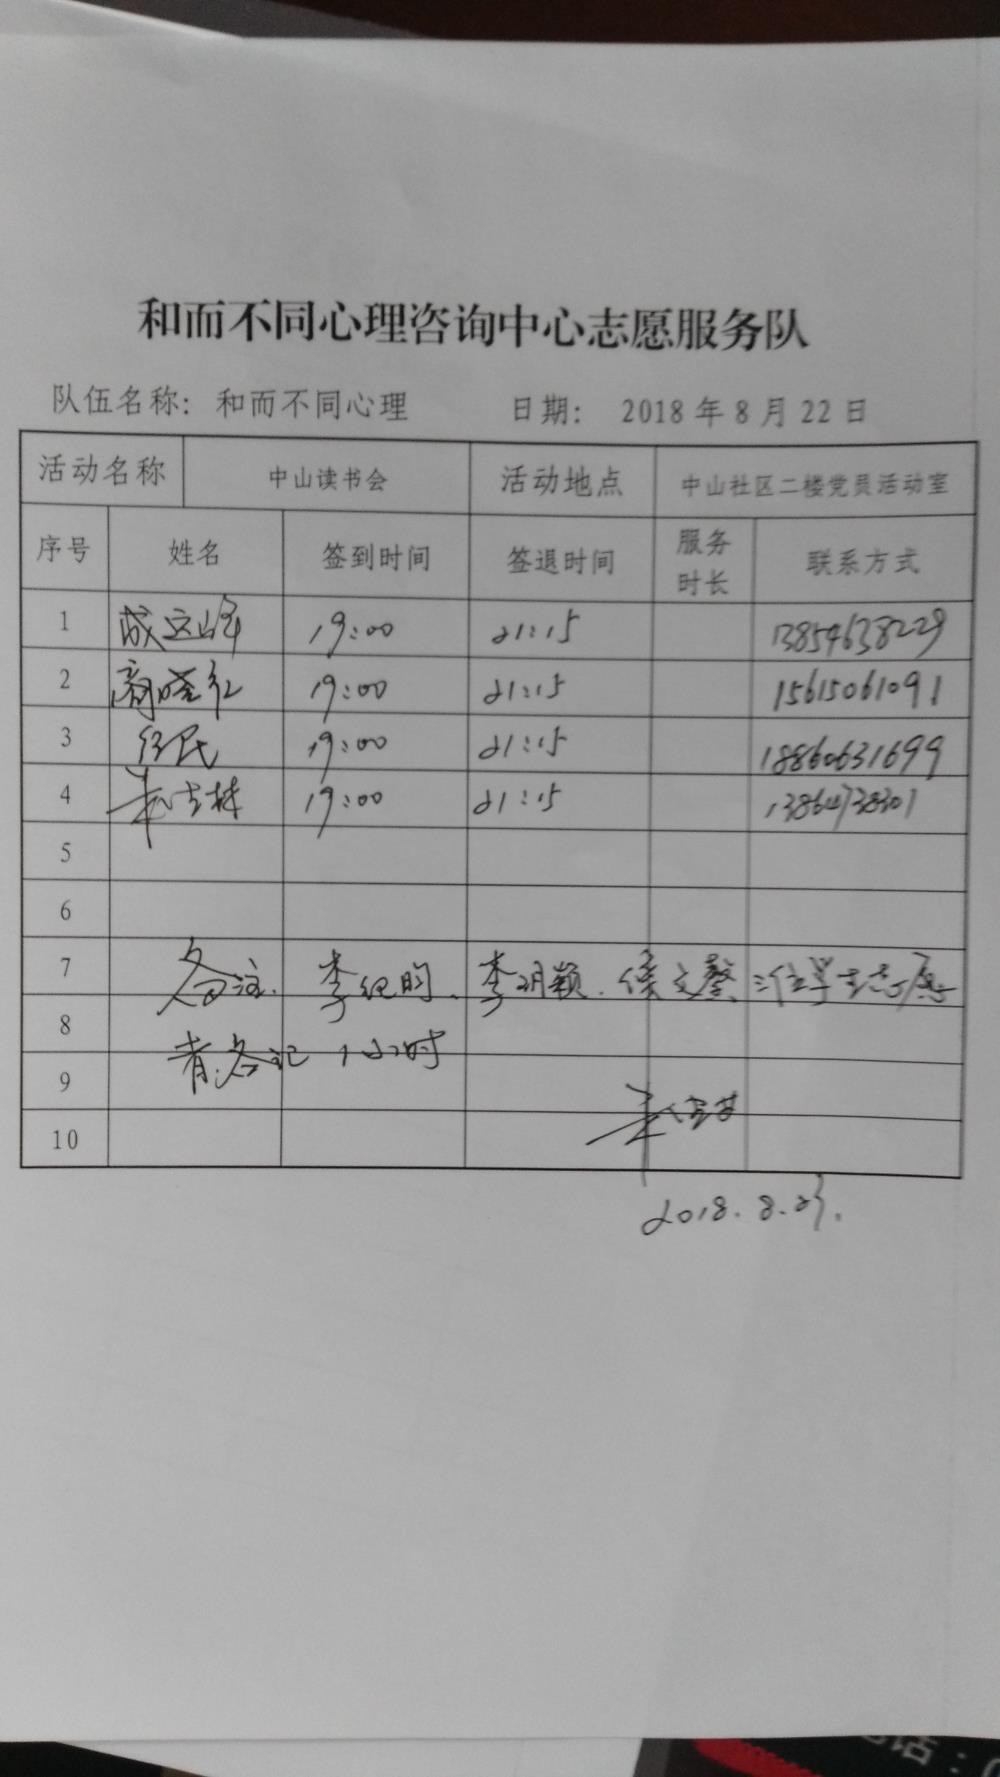 和而不同心理咨询中心志愿服务队
队伍名称: 和而不同心理 日期: 2018年8月22日
活动名称 中山读书会 活动地点 中山社区二楼党员活动室
序号 姓名 签到时间 签退时间 服务时长 联系方式
1 19:00 21:15 13854638229
2 商晓红 19:00 21:15 15615061091
3 任民 19:00 21:15 18860631699
4 19:00 21:15 13864738301
5
6
7 备注. 李纪昀、李玥颖. 侯文馨 三位学生志愿
8
者.各记1小时
9
10
2018.8.23.
话: